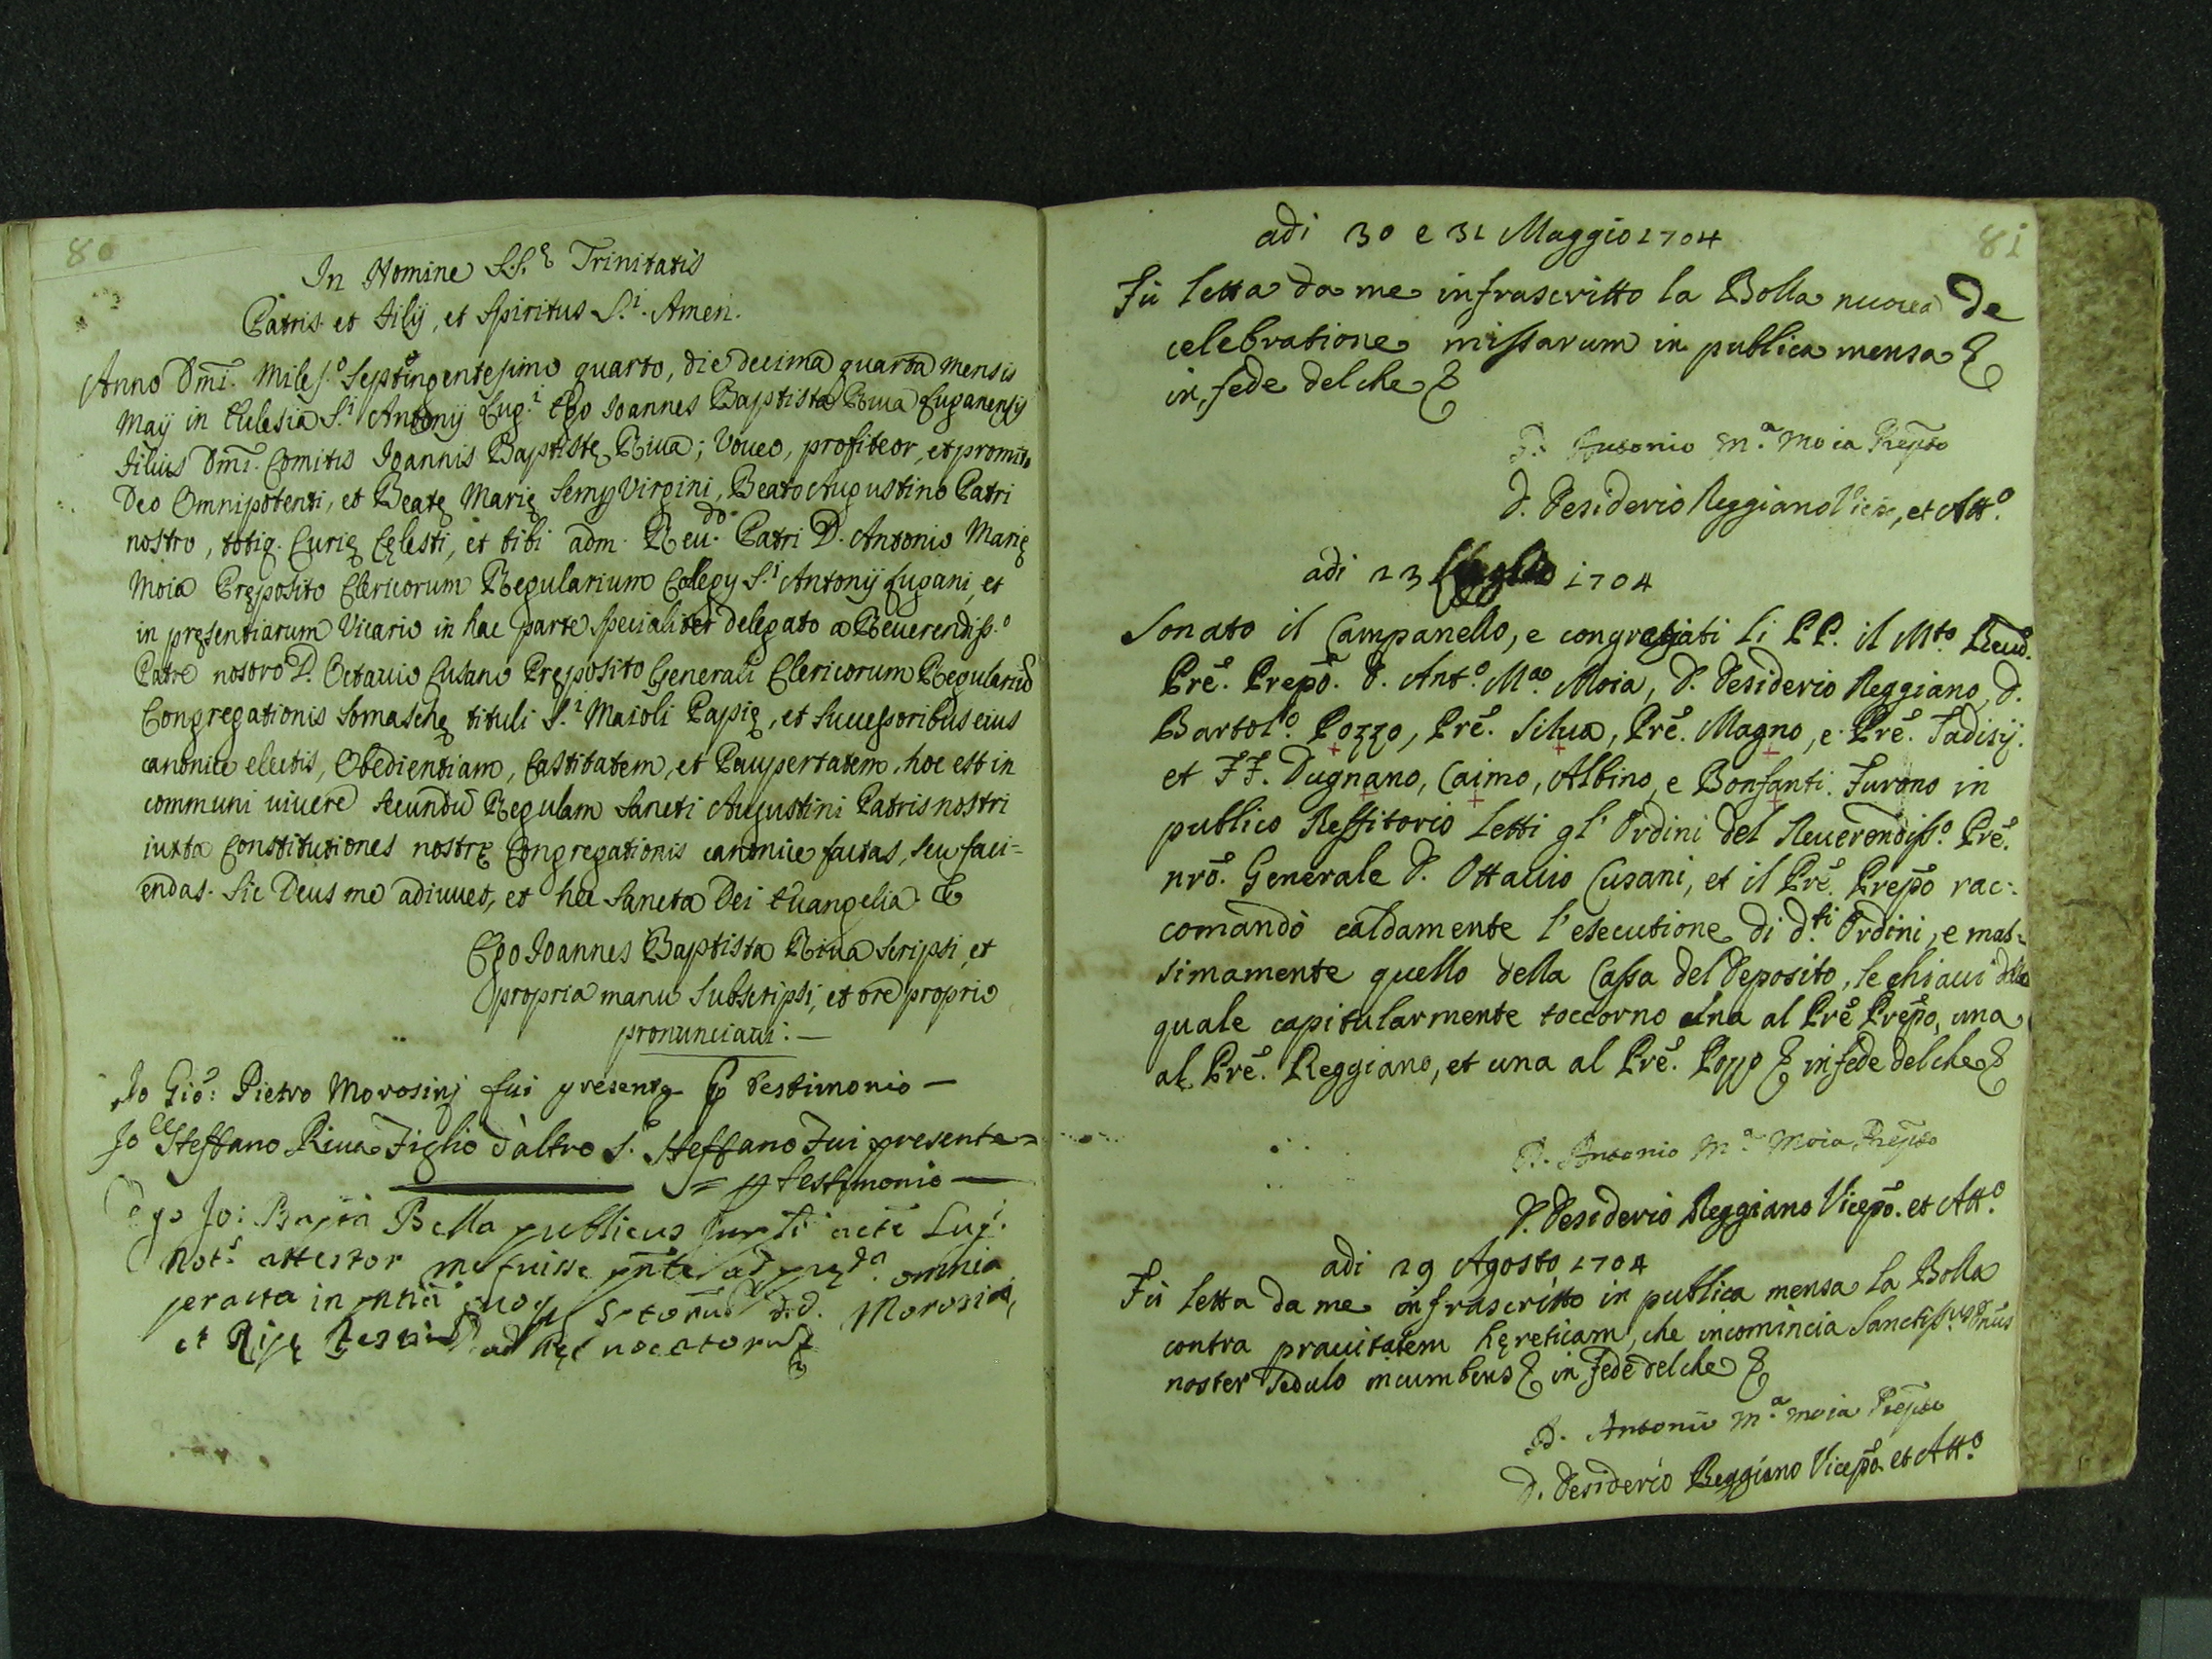 80
In Nomine S.S.e Trinitatis
Patris et Filij, et Spiritus S.i Amen.
Anno Dmi. Miles.o Septingentesimo quarto, die decima quarta mensis
Maij in Eclesia S.i Antonij Lug.i Ego Joannes Baptista Riua Luganensis
filius Dmi. Comitis Joannis Baptistę Riua; Voueo, profiteor, et promitto
Deo Omnipotenti, et Beatę Marię Semp Virgini, Beato Augustino Patri
nostro, totiq. Curię Cęlesti, et tibi adm. Reu.do Patri D. Antonio Marię
Moia Pręposito Clericorum Regularium Colegij S.i Antonij Lugani, et
in pręsentiarum Vicario in hac parte specialiter delegato a Reuerendiss.o
Patre nostro D. Octauio Cusano Pręposito Generali Clericorum Regulariū
Congregationis Somaschę tituli S.i Maioli Papię, et Successoribus eius
canonice electis, Obedientiam, Castitatem, et Paupertatem, hoc est in
communi uiuere secundū Regulam Sancti Augustini Patris nostri
iuxta Constitutiones nostrę Congregationis canonice factas, seu faci=
endas. Sic Deus me adiuuet, et hęc Sancta Dei Euangelia. &
Ego Joannes Baptista Riua scripsi, et
propria manu subscripsi, et ore proprio
pronunciaui.—
Jo Gio: Pietro Morosinj fui presente p testimonio—
Jo Steffano Riua Figlio d'altro S. Steffano Fui presente=
= p testimonio—
Ego Jo: Bapta Bella publicus Lug.i
Not.s attestor me fuisse pnte ad omnia
peracta in D.D. Morosini,
et Ripę testiū ad hęc uocatorū &
81
adi 30 e 31 Maggio 1704
Fù letta da me infrascritto la Bolla nuoua De
celebratione missarum in publica mensa &
in fede del che &
D. Antonio M.a Moia Prepto
D. Desiderio Reggiano Vicep, et Att.o
adi 23 Luglio 1704
Sonato il Campanello, e congregati li PP. il Mto. Reud.
Prē. Prepō. D. Ant.o M.a Moia, D. Desiderio Reggiano, D.
Bartol.o Pozzo, Prē. Silua, Prē. Magno, e Prē. Tadisij.
et FF. Dugnano, Caimo, Albino, e Bonfanti. Furono in
publico Reffitorio letti gl' Ordini del Reuerendiss.o Prē.
nrō. Generale D. Ottauio Cusani, et il Prē. Prepō rac=
comandò caldamente l'esecutione di d.ti Ordini, e mas=
simamente quello della Cassa del Deposito, le chiaui della
quale capitularmente toccorno una al Prē Prepō, una
al Prē. Reggiano, et una al Prē. Pozzo & in fede del che &
D. Antonio M.a Moia Prepto
D. Desiderio Reggiano Vicepō. et Att.o
adi 29 Agosto 1704
Fù letta da me infrascritto in publica mensa la Bolla
contra prauitatem hęreticam, che incomincia Sanctiss.us Dnūs
noster sedulo incumbens & in fede del che &
D. Antonio M.a Moia Prepto
D. Desiderio Reggiano Vicepō. et Att.o